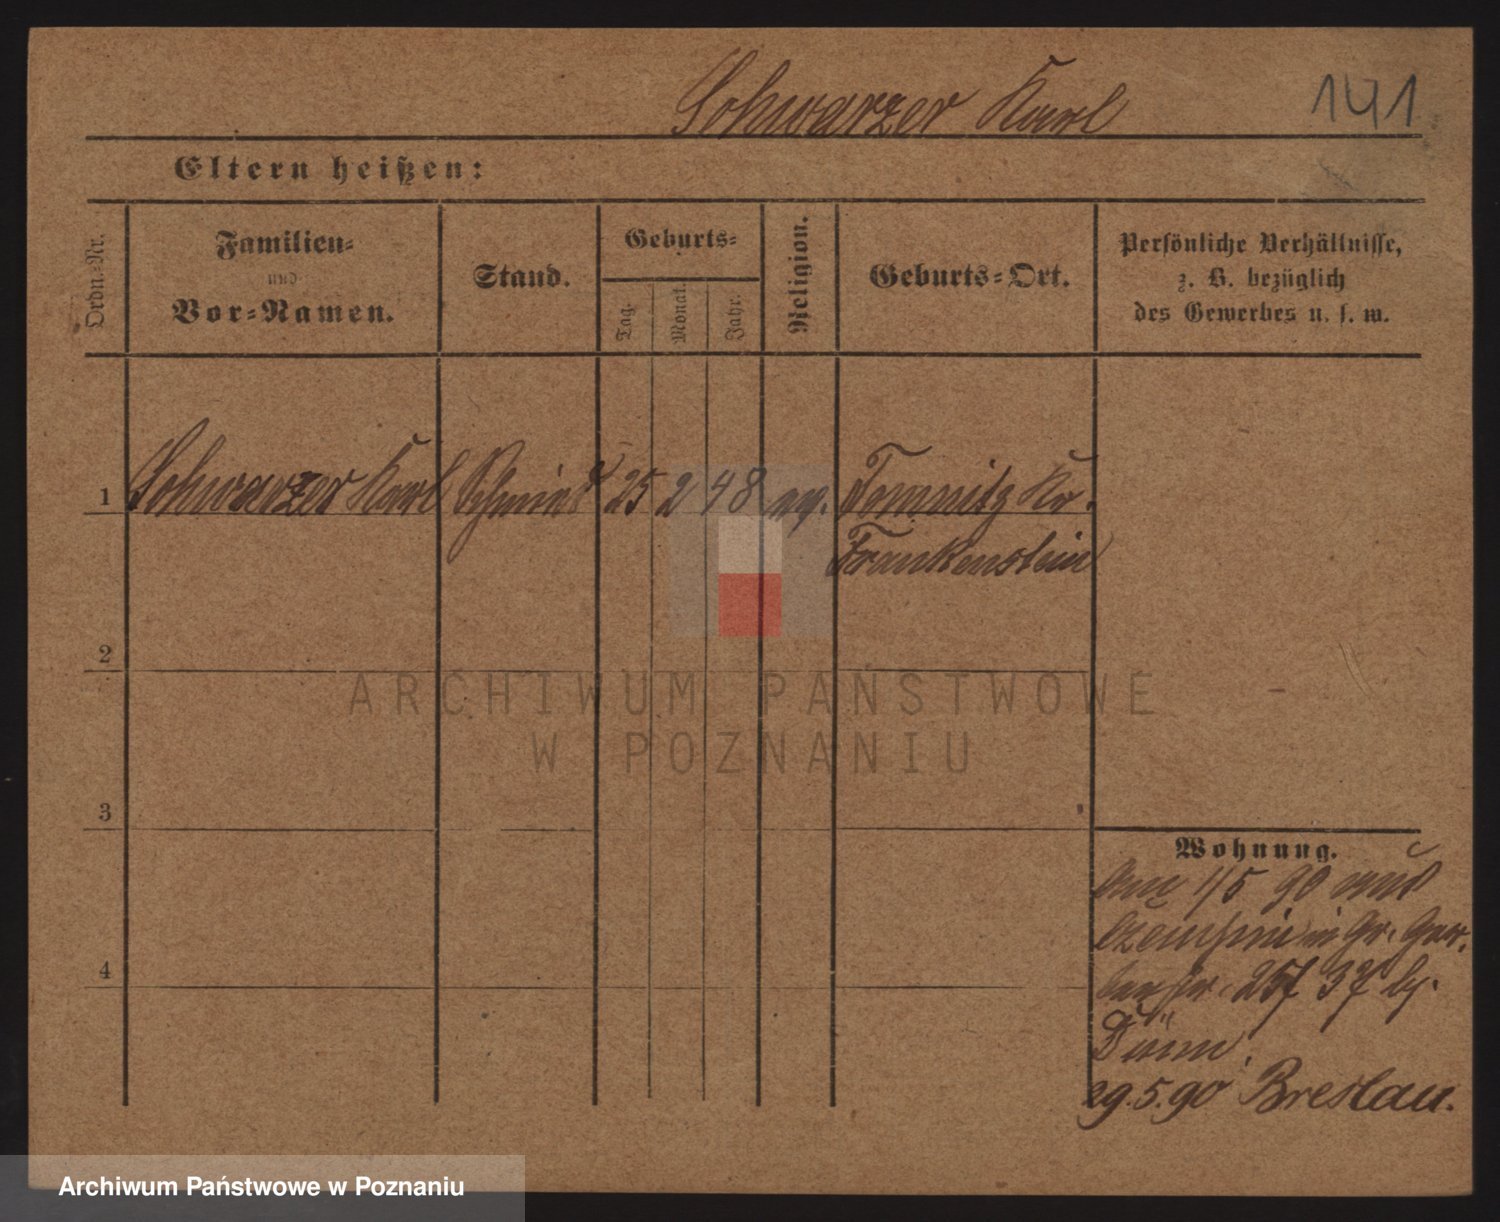 Schwarzer Karl
141
Eltern heißen:
Ordn.-Nr.
Familien-
und
Vor-Namen.
Stand.
Geburts-
Tag.
Monat.
Jahr.
Religion.
Geburts-Ort.
Persönliche Verhältnisse,
z. B. bezüglich
des Gewerbes u. s. w.
1 Schwarzer Karl Schmied 25 2 48 Tomnitz Kr.
Frankenstein
2
3
4
Wohnung.
1/5 90
in Gr. Ger-
berstr. 37 by.
29.5.90 Breslau.
ARCHIWUM PAŃSTWOWE
W POZNANIU
Archiwum Państwowe w Poznaniu